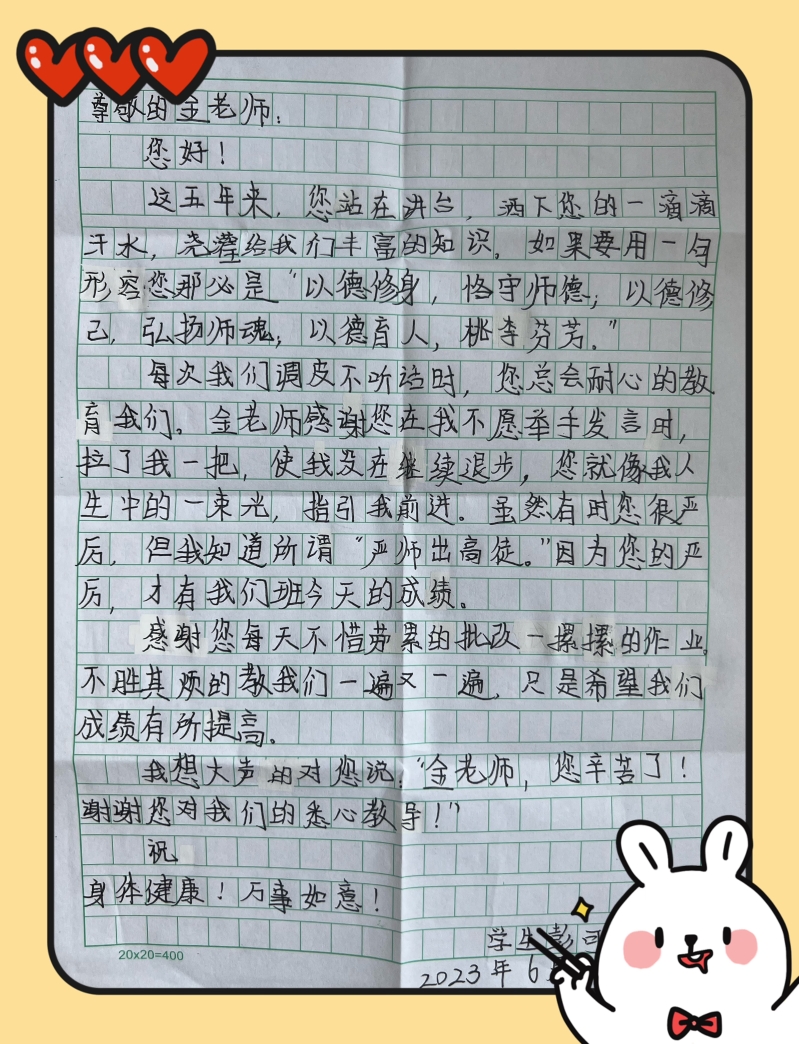 尊敬的金老师：
您好！
这五年来，您站在讲台，洒下您的一滴滴
汗水，浇灌给我们丰富的知识。如果要用一句
形容您那必是“以德修身，恪守师德；以德修
己，弘扬师魂；以德育人，桃李芬芳。”
每次我们调皮不听话时，您总会耐心的教
育我们。金老师感谢您在我不愿举手发言时，
拉了我一把，使我没在继续退步，您就像我人
生中的一束光，指引我前进。虽然有时您很严
厉，但我知道所谓“严师出高徒。”因为您的严
厉，才有我们班今天的成绩。
感谢您每天不惜劳累的批改一摞摞的作业。
不胜其烦的教我们一遍又一遍，只是希望我们
成绩有所提高。
我想大声的对您说：“金老师，您辛苦了！
谢谢您对我们的悉心教导！”
祝
身体健康！万事如意！
学生彭
2023年6
20x20=400